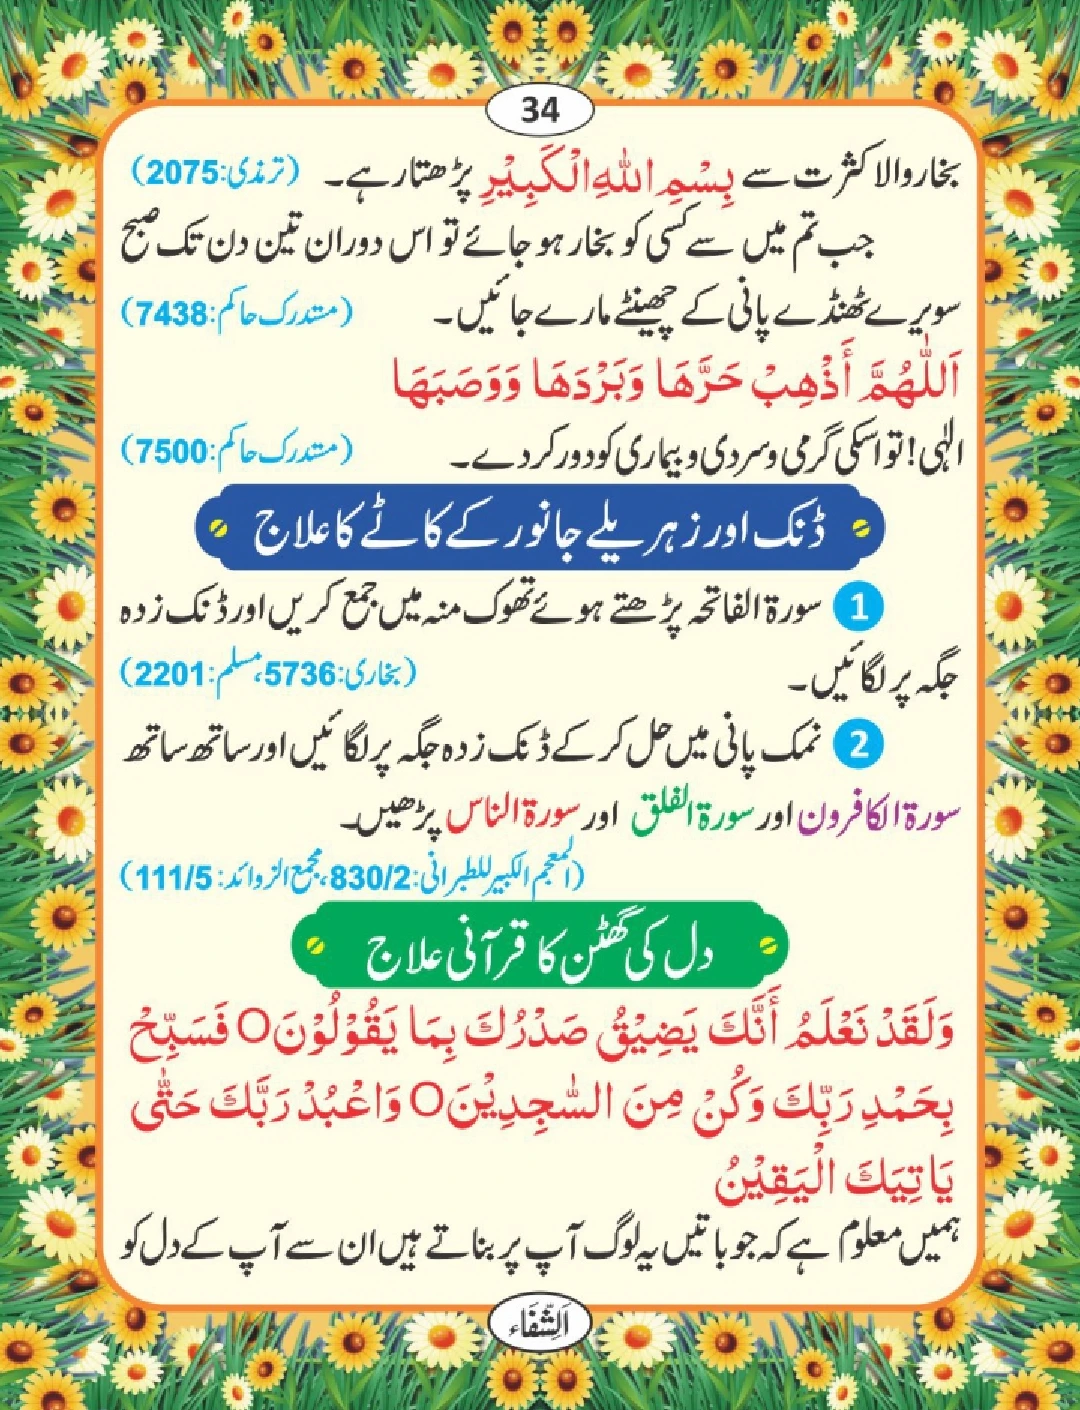 34
بخار والا کثرت سے بِسْمِ اللهِ الْكَبِيْرِ پڑھتا رہے۔ (ترمذی:2075)
جب تم میں سے کسی کو بخار ہو جائے تو اس دوران تین دن تک صبح
سویرے ٹھنڈے پانی کے چھینٹے مارے جائیں۔ (مستدرک حاکم:7438)
اَللّٰهُمَّ أَذْهِبْ حَرَّهَا وَبَرْدَهَا وَوَصَبَهَا
الٰہی! تو اسکی گرمی و سردی و بیماری کو دور کر دے۔ (مستدرک حاکم:7500)
ڈنک اور زہریلے جانور کے کاٹے کا علاج
1 سورۃ الفاتحہ پڑھتے ہوئے تھوک منہ میں جمع کریں اور ڈنک زدہ
جگہ پر لگائیں۔ (بخاری:5736، مسلم:2201)
2 نمک پانی میں حل کر کے ڈنک زدہ جگہ پر لگائیں اور ساتھ ساتھ
سورۃ الکافرون اور سورۃ الفلق اور سورۃ الناس پڑھیں۔
(المعجم الکبیر للطبرانی:830/2، مجمع الزوائد:111/5)
دل کی گھٹن کا قرآنی علاج
وَلَقَدْ نَعْلَمُ أَنَّكَ يَضِيْقُ صَدْرُكَ بِمَا يَقُوْلُوْنَO فَسَبِّحْ
بِحَمْدِ رَبِّكَ وَكُنْ مِنَ السّٰجِدِيْنَO وَاعْبُدْ رَبَّكَ حَتّٰى
يَاتِيَكَ الْيَقِيْنُ
ہمیں معلوم ہے کہ جو باتیں یہ لوگ آپ پر بناتے ہیں ان سے آپ کے دل کو
اَلشِّفَاء